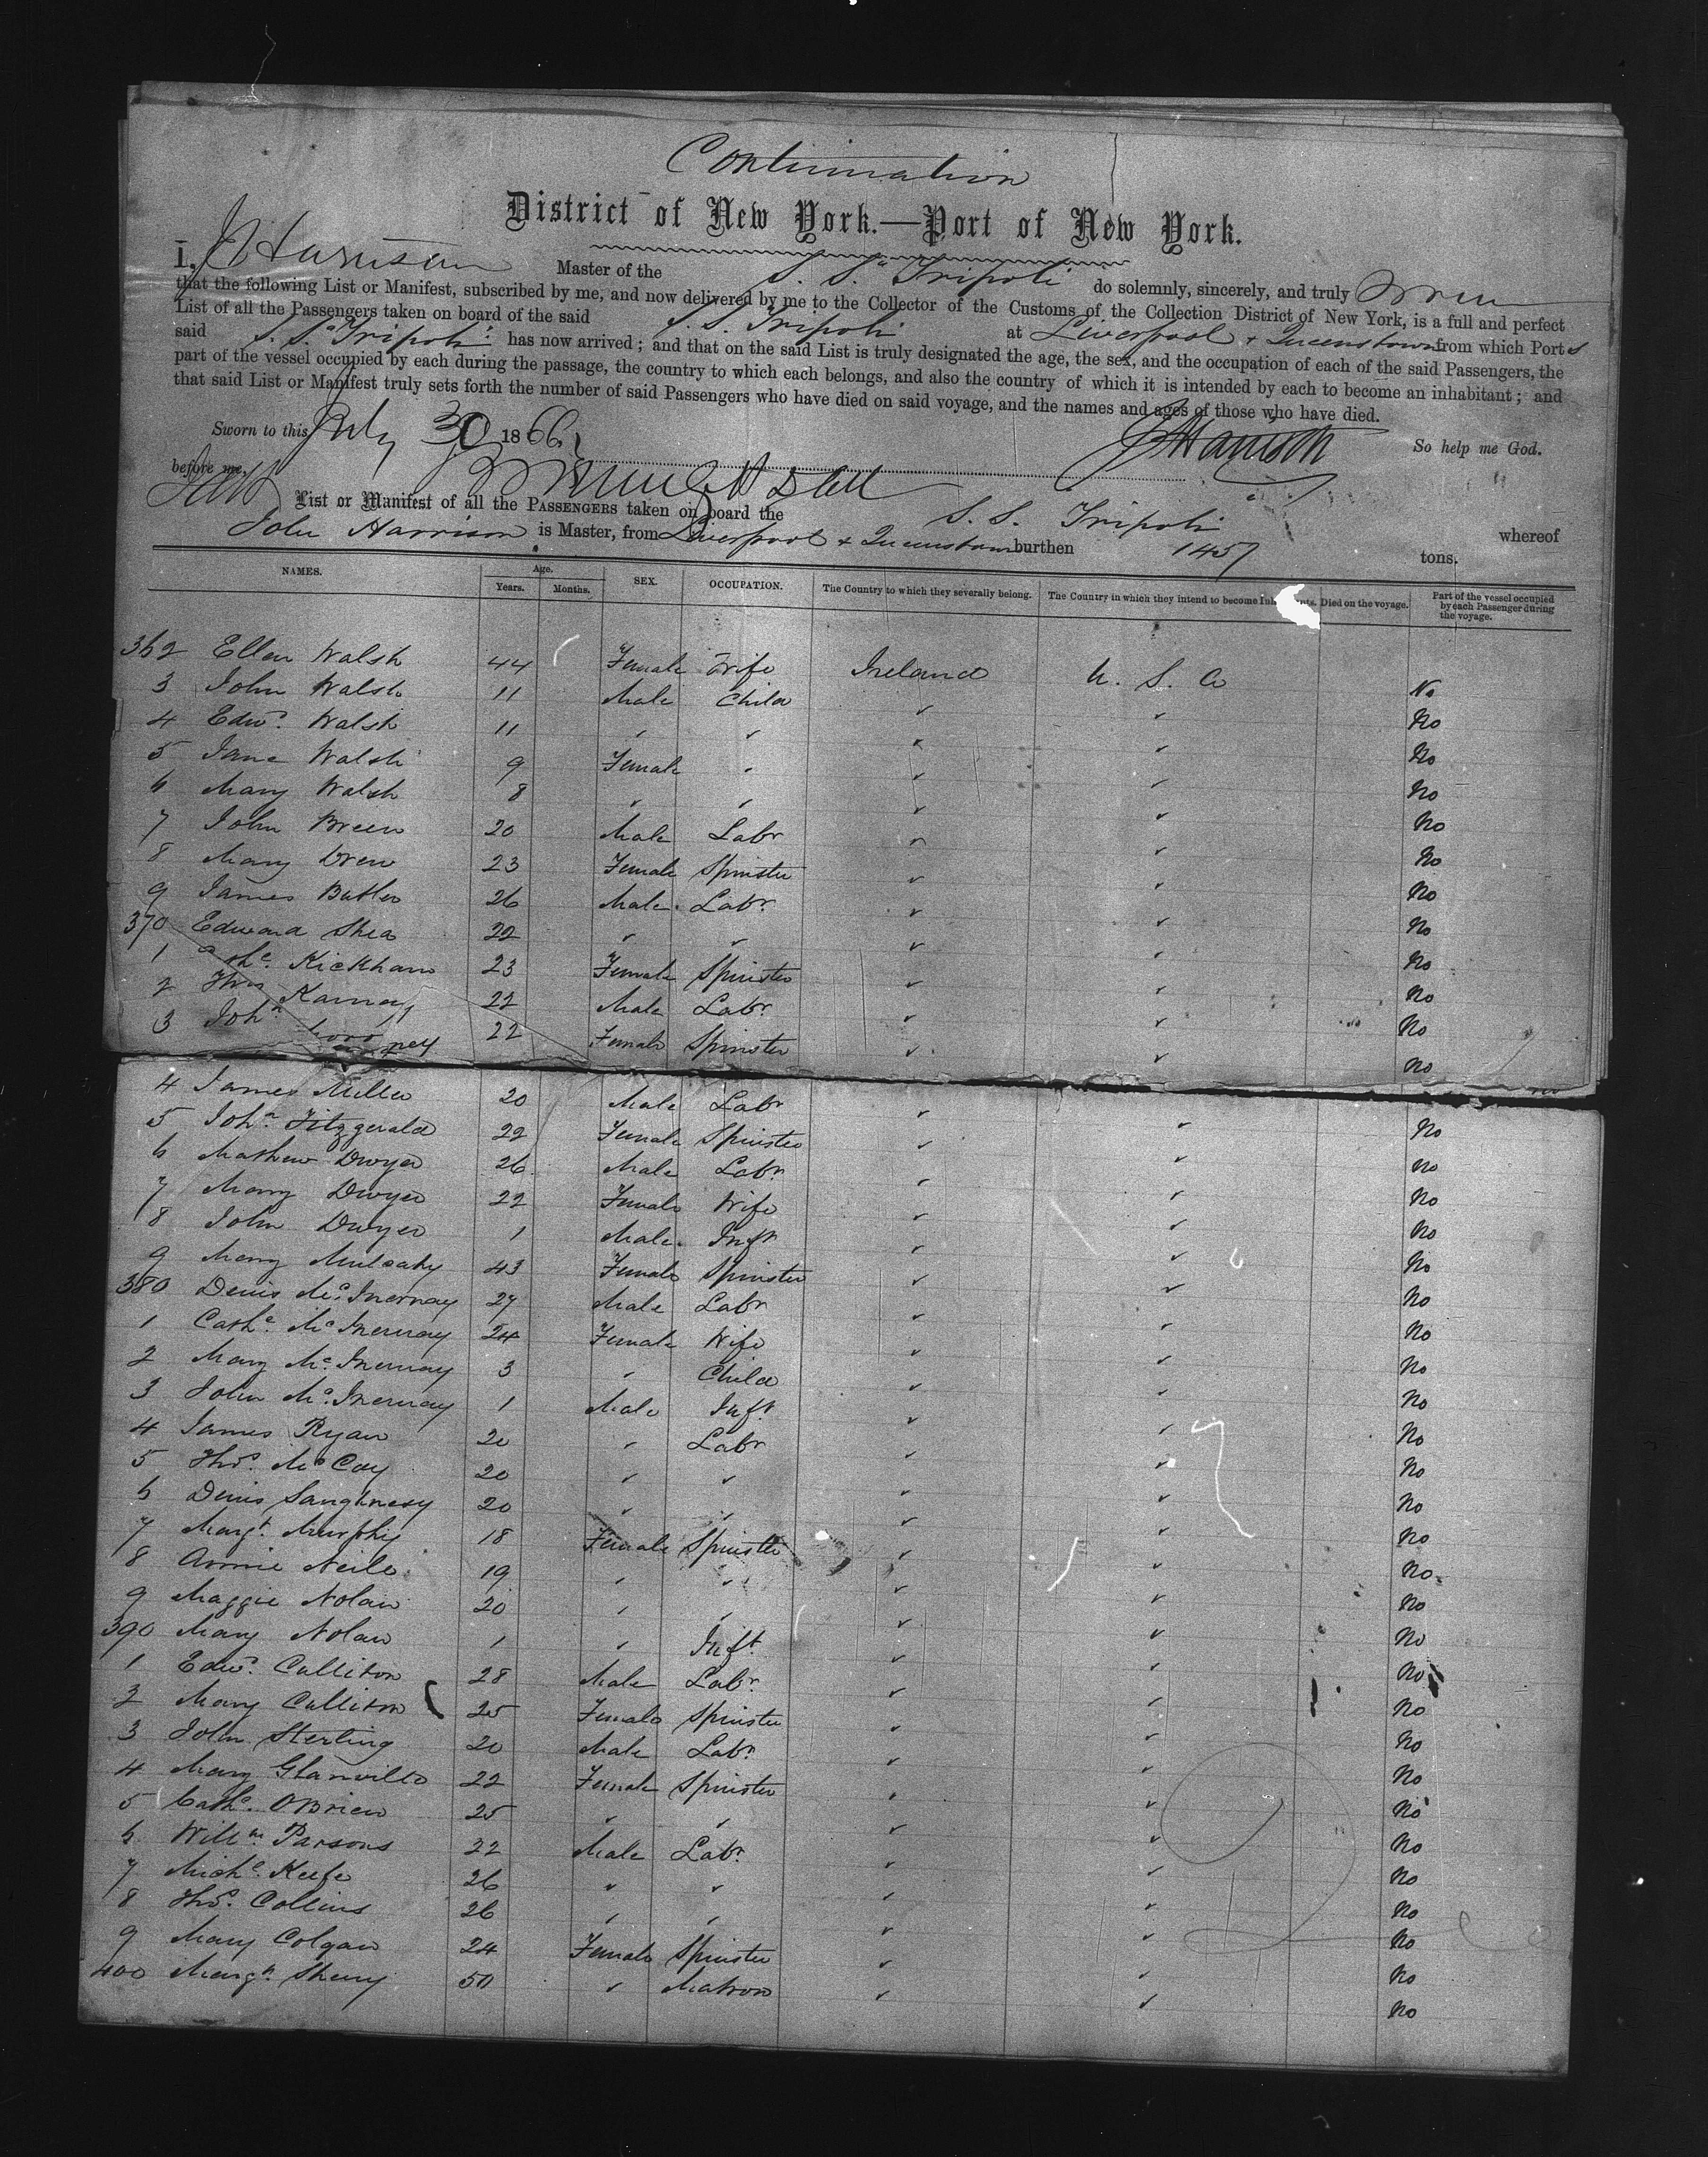 Continuation
District of New York.—Port of New York.
I, J Harrison Master of the S. S. "Tripoli do solemnly, sincerely, and truly
that the following List or Manifest, subscribed by me, and now delivered by me to the Collector of the Customs of the Collection District of New York, is a full and perfect
List of all the Passengers taken on board of the said S. S. Tripoli at Liverpool & Queenstown from which Ports
said S. S. "Tripoli" has now arrived; and that on the said List is truly designated the age, the sex, and the occupation of each of the said Passengers, the
part of the vessel occupied by each during the passage, the country to which each belongs, and also the country of which it is intended by each to become an inhabitant; and
that said List or Manifest truly sets forth the number of said Passengers who have died on said voyage, and the names and ages of those who have died.
Sworn to this July 30 1866, J Harrison So help me God.
before me,
List or Manifest of all the PASSENGERS taken on board the S. S. Tripoli whereof
John Harrison is Master, from Liverpool & Queenstown burthen 1457 tons.
NAMES. Age. Years. Months. SEX. OCCUPATION. The Country to which they severally belong. The Country in which they intend to become Inhabitants. Died on the voyage. Part of the vessel occupied by each Passenger during the voyage.
362 Ellen Walsh 44 Female Wife Ireland U. S. A No
3 John Walsh 11 Male Child ✓ ✓ No
4 Edwd. Walsh 11 " " ✓ ✓ No
5 Jane Walsh 9 Female " ✓ ✓ No
6 Mary Walsh 8 " " ✓ ✓ No
7 John Breen 20 Male Labr ✓ ✓ No
8 Mary Drew 23 Female Spinster ✓ ✓ No
9 James Butler 26 Male Labr. ✓ ✓ No
370 Edward Shea 22 " " ✓ ✓ No
1 Cathe. Kickham 23 Female Spinster ✓ ✓ No
2 Thos Karney 22 Male Labr. ✓ ✓ No
3 Joha 22 Female Spinster ✓ ✓ No
4 James Miller 20 Male Labr ✓ ✓ No
5 Joha. Fitzgerald 22 Female Spinster ✓ ✓ No
6 Mathew Dwyer 26 Male Labr. ✓ ✓ No
7 Mary Dwyer 22 Female Wife ✓ ✓ No
8 John Dwyer 1 Male Inft ✓ ✓ No
9 Mary Mulcahy 43 Female Spinster ✓ ✓ No
380 Denis Mc.Inernay 27 Male Labr ✓ ✓ No
1 Cathe. Mc Inernay 24 Female Wife ✓ ✓ No
2 Mary Mc.Inernay 3 " Child ✓ ✓ No
3 John Mc.Inernay 1 Male Inft. ✓ ✓ No
4 James Ryan 20 " Labr ✓ ✓ No
5 Thos. McCoy 20 " " ✓ ✓ No
6 Denis Saughnesy 20 " " ✓ ✓ No
7 Margt. Murphy 18 Female Spinster ✓ ✓ No
8 Annie Neile 19 " " ✓ ✓ No
9 Maggie Nolan 20 " " ✓ ✓ No
390 Mary Nolan 1 " Inft. ✓ ✓ No
1 Edwd. Culliton 28 Male Labr. ✓ ✓ No
2 Mary Culliton 25 Female Spinster ✓ ✓ No
3 John Sterling 20 Male Labr. ✓ ✓ No
4 Mary Glanville 22 Female Spinster ✓ ✓ No
5 Cathe. OBrien 25 " " ✓ ✓ No
6 Willm. Parsons 22 Male Labr. ✓ ✓ No
7 Michl. Keefe 26 " " ✓ ✓ No
8 Thos. Collins 26 " " ✓ ✓ No
9 Mary Colgan 24 Female Spinster ✓ ✓ No
400 Margt. Sheny 50 " Matron ✓ ✓ No